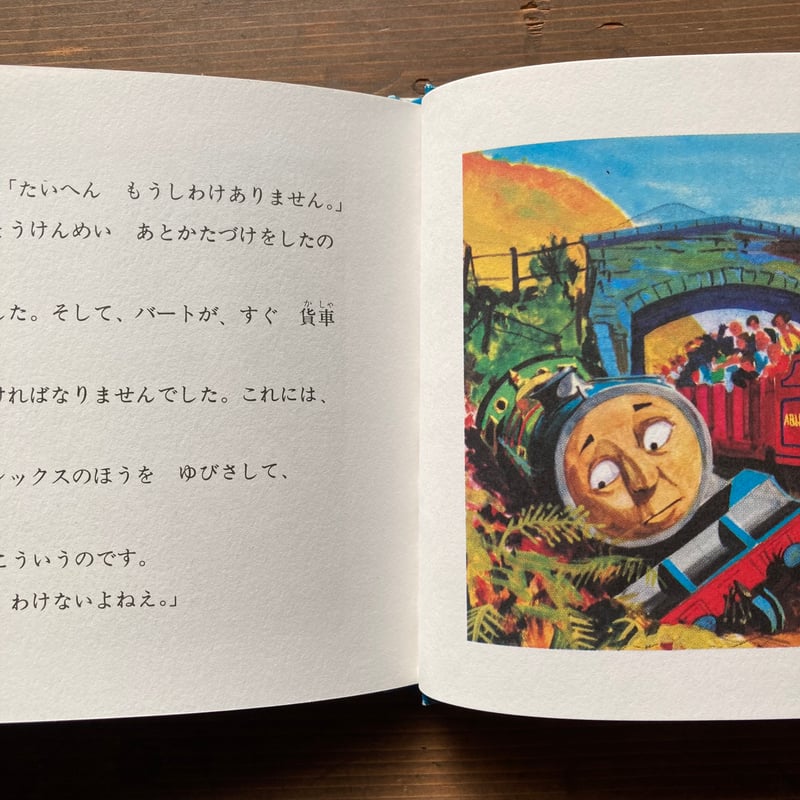 「たいへん　もうしわけありません。」
うけんめい　あとかたづけをしたの
した。そして、バートが、すぐ　貨車
ければなりませんでした。これには、
レックスのほうを　ゆびさして、
こういうのです。
わけないよねえ。」